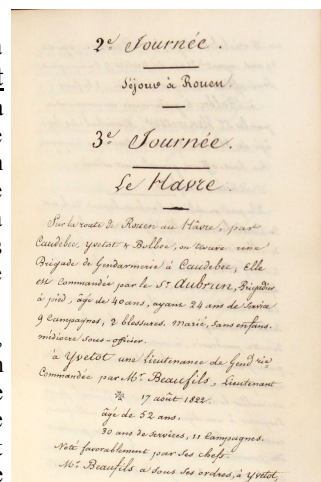 2e Journée.
Séjour à Rouen.
3e Journée.
Le Havre.
Sur la route de Rouen au Hâvre, par
Caudebec, Yvetot & Bolbec, on trouve une
Brigade de Gendarmerie à Caudebec, Elle
est Commandée par le Sr. Aubrun, Brigadier
à pied, âgé de 40 ans, ayant 24 ans de Service
9 Campagnes, 2 blessures. Marié, Sans enfans.
médiocre sous-officier.
à Yvetot une Lieutenance de Gendrie
Commandée par Mr. Beaufils, Lieutenant
17 août 1822.
âgé de 52 ans.
30 ans de services, 11 Campagnes.
Noté favorablement par ses chefs.
Mr. Beaufils a sous ses ordres, à Yvetot,